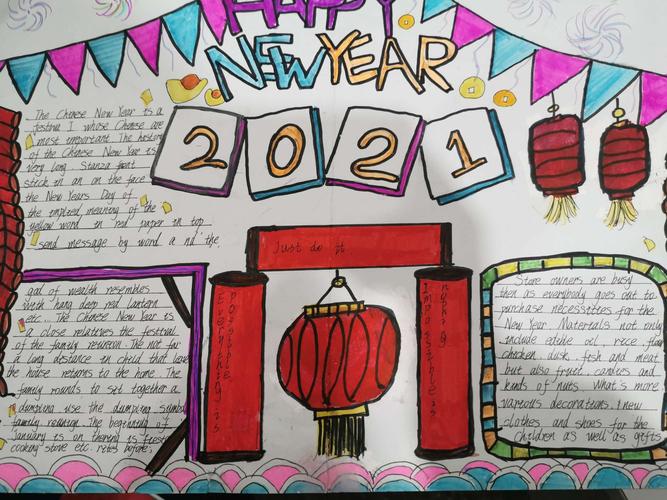 HAPPY
NEW YEAR
2021
The Chinese New Year is a
festina I whose Chinese are
most important The history
of the Chinese New Year is
very long. Stanza font
stick in an on the face
the New Years Day of
the implied meaning of the
yellow word in red paper in top
send message by word a nd the
god of wealth resembles
with hang deep red lantern
etc. The Chinese New Year is
a close relatives the festival
of the family reunion. The not far
a long distance in child that leave
the house returns to the home. The
family rounds to sit together a
dumpling use the dumpling symbol
family reunion. The beginning of
January is on thering is
cooking stove etc. rites before;
Just do it
Everything is
possible
Impossible is
nothing
Store owners are busy
then as everybody goes out to
purchase necessities for the
New Year. Materials not only
include edible oil, rice, flour
chicken, duck, fish and meat
but also fruit, candies and
kinds of nuts. What's more
various decorations, new
clothes and shoes for the
children as well as gifts